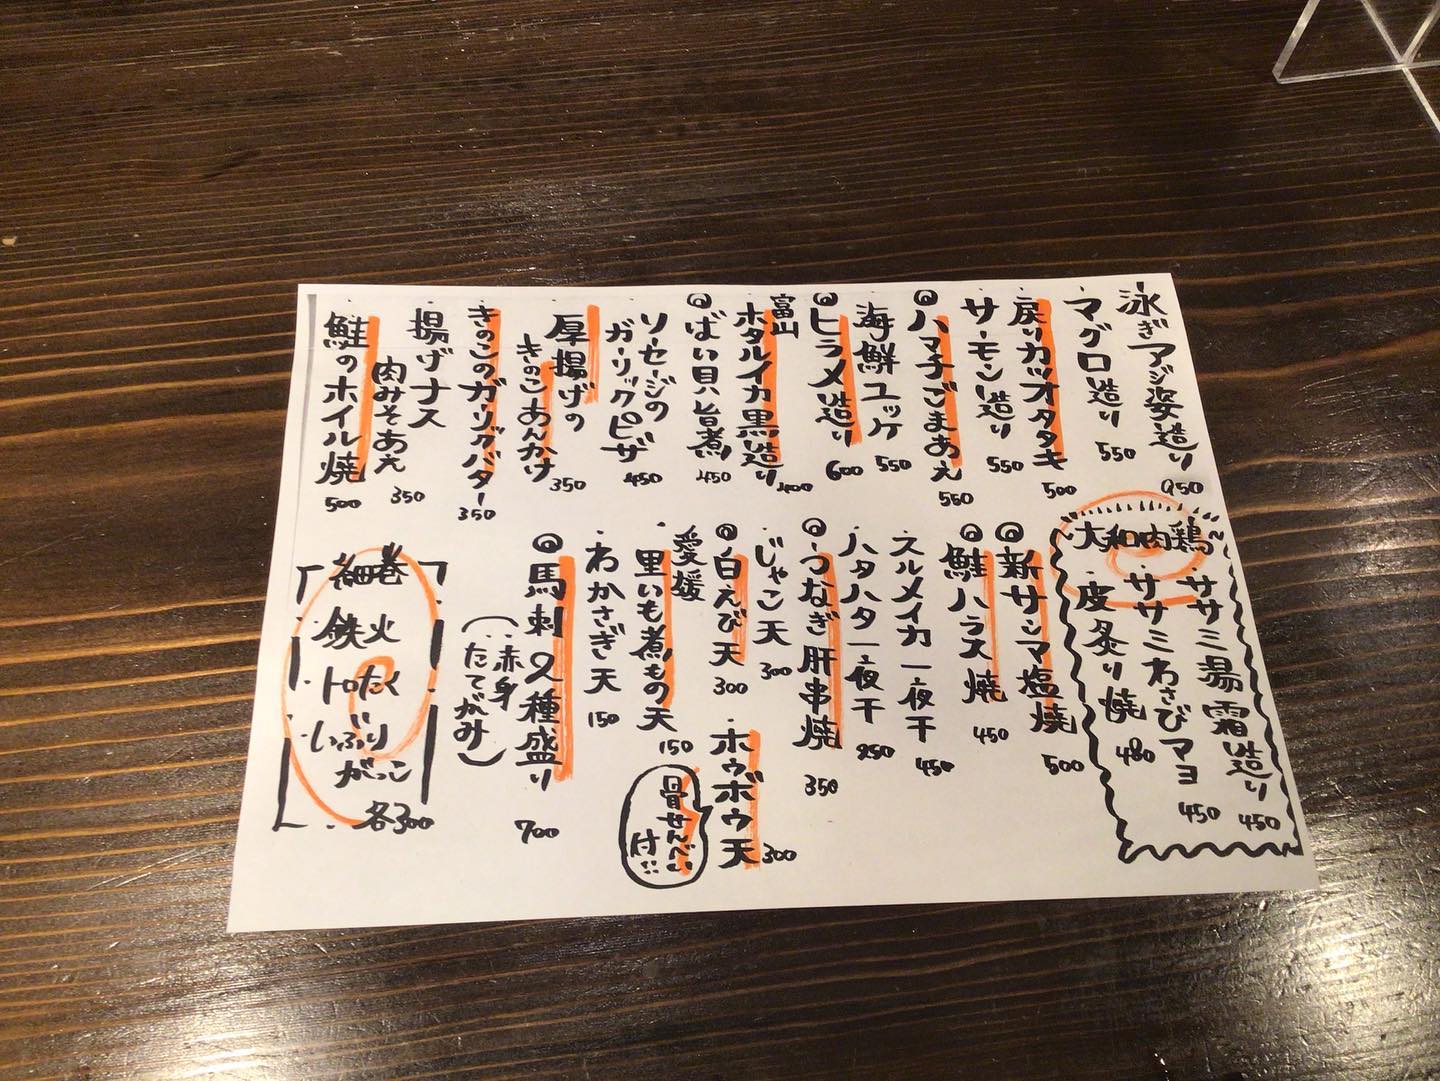 泳ぎアジ姿造り 950
マグロ造り 550
サーモン造り 550
戻りカツオタタキ 500
◎ハマチごまあえ 550
海鮮ユッケ 550
◎ヒラメ造り 600
富山
ホタルイカ黒造り 400
◎ばい貝旨煮 450
ソーセージの
ガーリックピザ 450
厚揚げの
きのこあんかけ 350
きのこのガーリックバター 350
揚げナス
肉みそあえ 350
鮭のホイル焼 500
大和肉鶏
ササミ湯霜造り 450
ササミわさびマヨ 450
皮炙り焼 480
◎新サンマ塩焼 500
◎鮭ハラス焼 450
スルメイカ一夜干 450
ハタハタ一夜干 250
◎うなぎ肝串焼 350
じゃこ天 300
◎白えび天 300
ホウボウ天 300
骨せんべい
付‥
愛媛
里いも煮もの天 150
わかさぎ天 150
◎馬刺2種盛り 700
(赤身
たてがみ)
細巻
鉄火
トロたく
いぶり
がっこ
各300